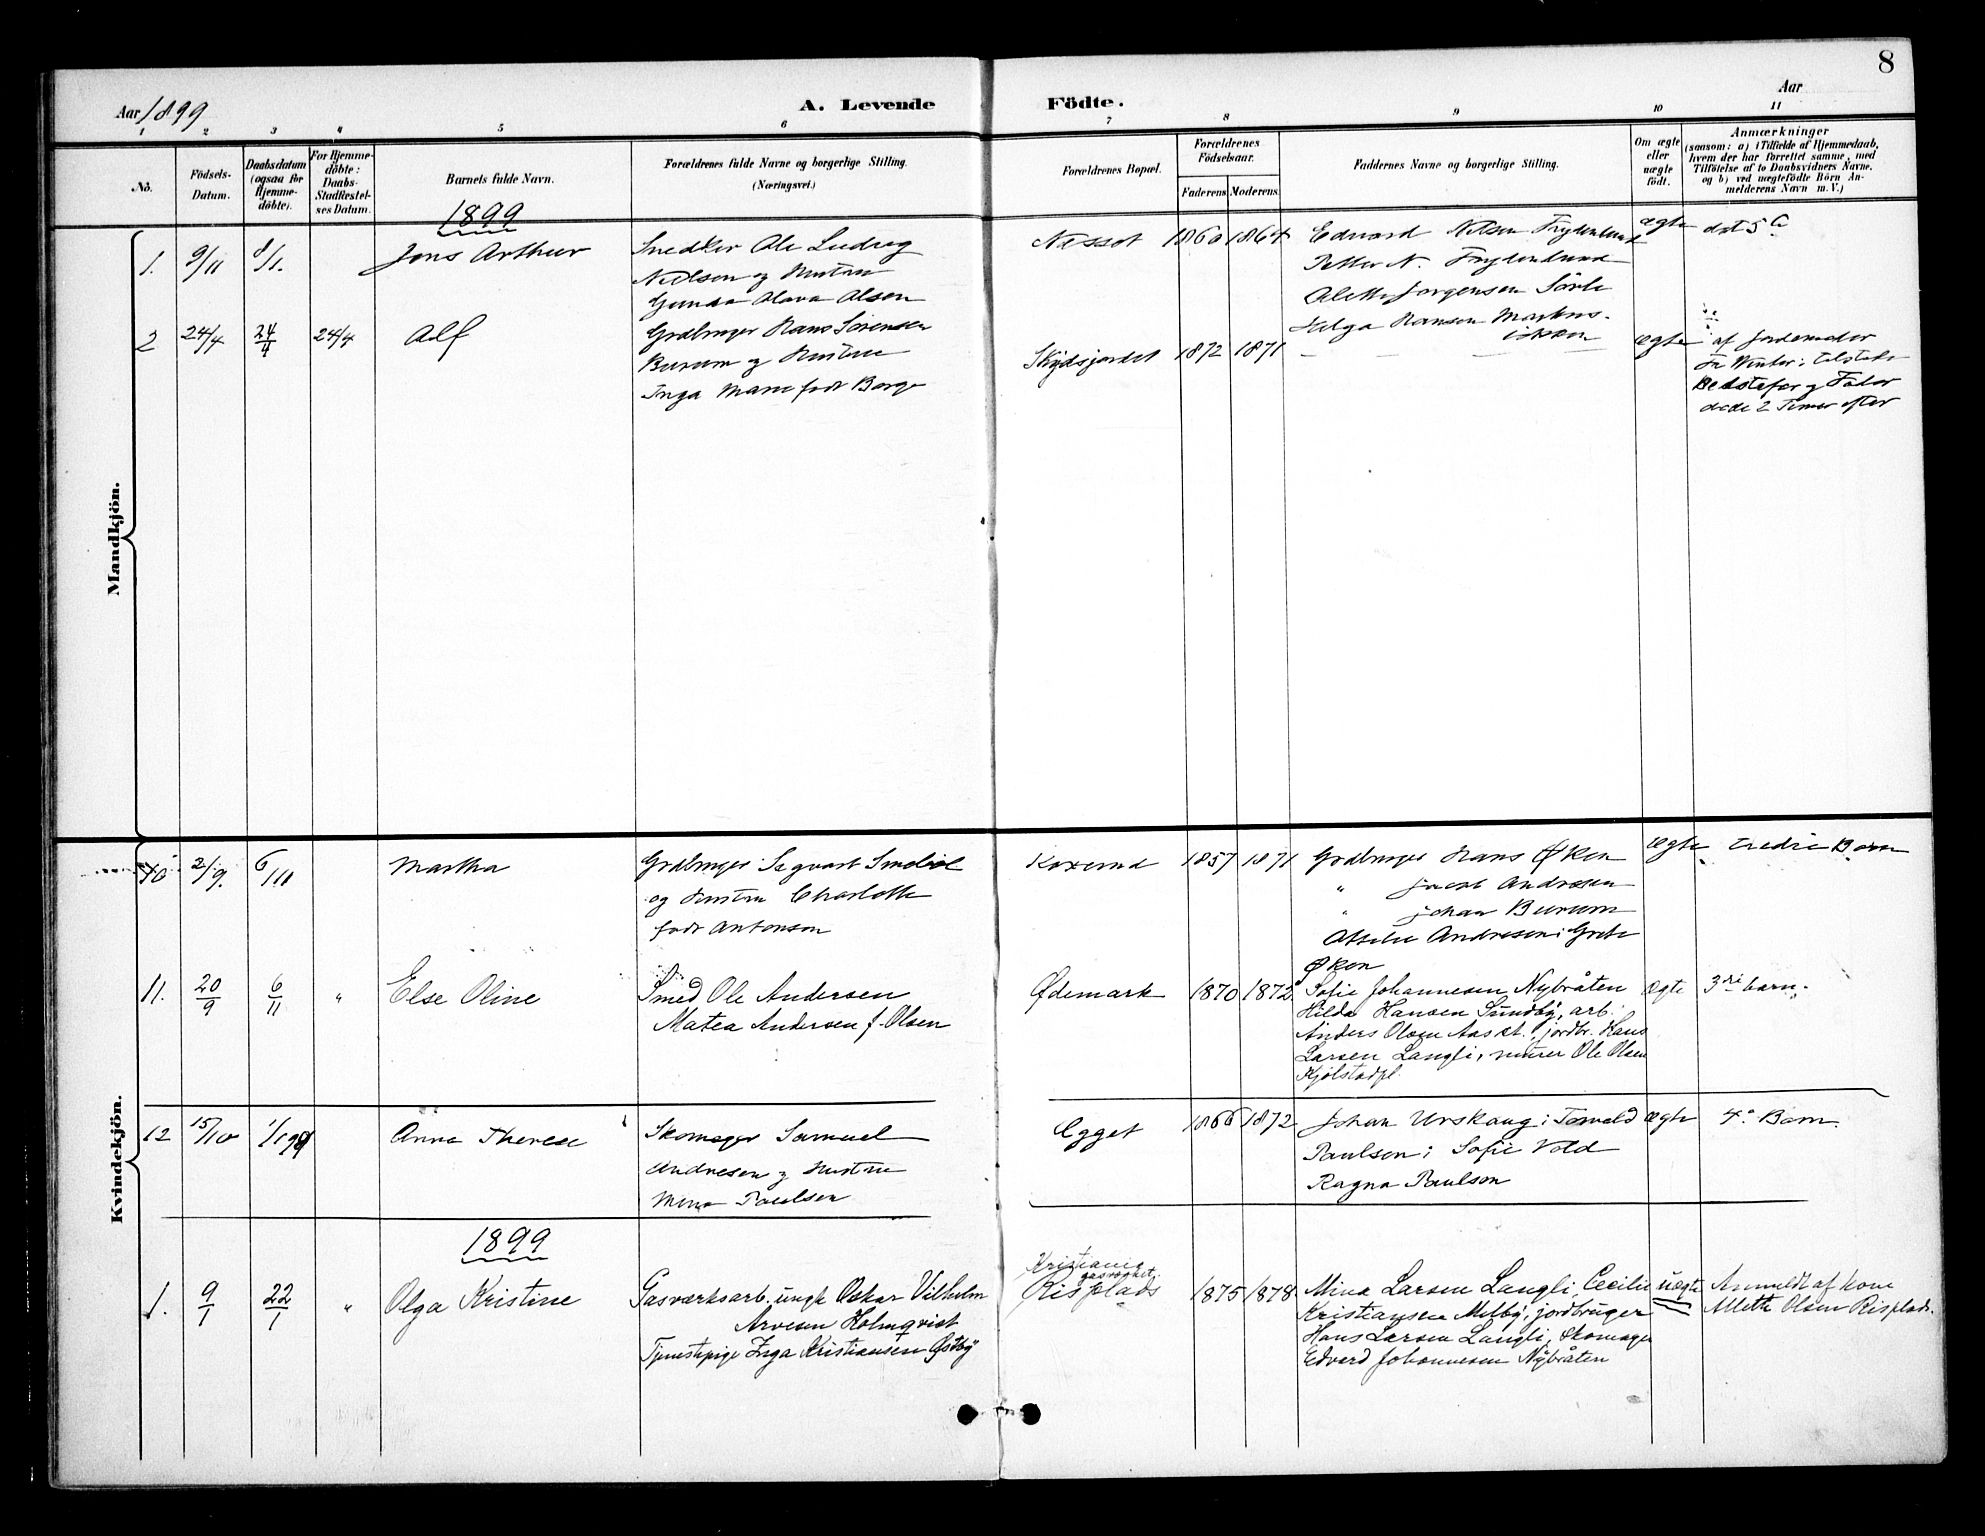 8
Aar 1899
A. Levende Födte.
Aar
1 2 3 4 5 6 7 8 9 10 11
No.
Födsels-Datum.
Daabsdatum (ogsaa for Hjemme-döbte).
For Hjemme-döbte: Daabs-Stadfæstel-ses Datum.
Barnets fulde Navn.
Forældrenes fulde Navne og borgerlige Stilling.
(Næringsvei.)
Forældrenes Bopæl.
Forældrenes Födselsaar.
Faderens Moderens
Faddernes Navne og borgerlige Stilling.
Om ægte eller uægte födt.
Anmærkninger
(saasom: a) i Tilfælde af Hjemmedaab,
hvem der har forrettet samme, med
Tilföielse af to Daabsvidners Navne,
og b) ved uægtefödte Börn An-
melderens Navn m. V.)
Mandkjön.
1899
1. 9/11 8/1. Jens Arthur
Snedker Ole Ludvig
Nielsen og Hustru
Olsen
1860 1864
Edvard Nilsen
Petter N.
Jorgensen
Helga Hansen
ægte
det 5
2 24/4 24/4 24/4 Alf
Grdbruger Hans Sørensen
Burum og Hustru
Inga Marie født Borge
1872 1871
ægte
af Jordemoder
Winter; tilstede
Bedstefar og Fader
døde 2 Timer efter
Kvindekjön.
10 2/9. 6/11 Martha
Grdbruger
og Hustru Charlotte
født Antonsen
1857 1871
Grdbruger Hans Øken
" Jacob Andresen
" Johan Burum
Andresen; Grete
Øken
ægte
tredie Barn
11. 20/9 6/11 " Else Oline
Smed Ole Andersen
Matea Andersen f. Olsen
Ødemark
1870 1872
Sofie Johannesen Nybråten
Hilda Hansen Sundby, arb.
Anders Olsen jordbr. Hans
Larsen Langli, murer Ole Olsen
Kjølstadpl.
ægte
3die barn.
12 15/10 1/1 99 Anna Therese
Skomager Samuel
Andresen og Hustru
Mina Paulsen
Egget
1866 1872
Johan Urskaug; Torvald
Paulsen; Sofie Vold
Ragna Paulson
ægte
4. Barn.
1899
1. 9/1 22/1 " Olga Kristine
Gasværksarb. ungk Oskar Vilhelm
Arvesen Holmqvist
Tjenestepige Inga Kristiansen Østby
Kristiania
gasværket
Risplads
1875 1878
Mina Larsen Langli, Cecilie
Kristiansen Melby, jordbruger
Hans Larsen Langli, Skomager
Edvard Johannesen Nybråten
uægte
Anmeldt af kone
Alette Olsen Risplads.